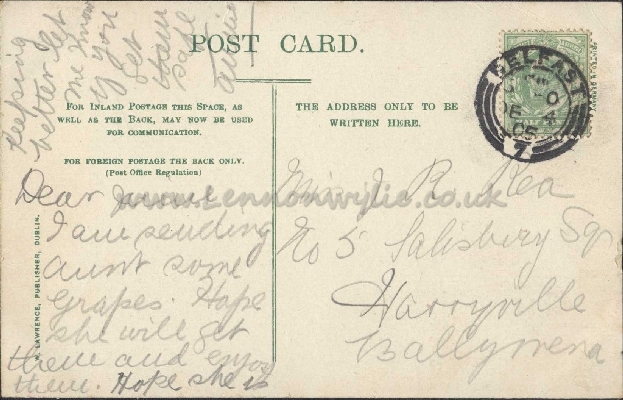 POST CARD.
FOR INLAND POSTAGE THIS SPACE, AS
WELL AS THE BACK, MAY NOW BE USED
FOR COMMUNICATION.
FOR FOREIGN POSTAGE THE BACK ONLY.
(Post Office Regulation)
THE ADDRESS ONLY TO BE
WRITTEN HERE.
BELFAST
DE 4
05
7
W. LAWRENCE, PUBLISHER, DUBLIN.
www.lennonwylie.co.uk
Dear
I am sending
aunt some
grapes. Hope
she will get
them and enjoy
them. Hope she is
keeping
better let
me know
if you
get
home
safe
Annie
Miss J. R. Rea
No 5 Salisbury Sq
Harryville
Ballymena